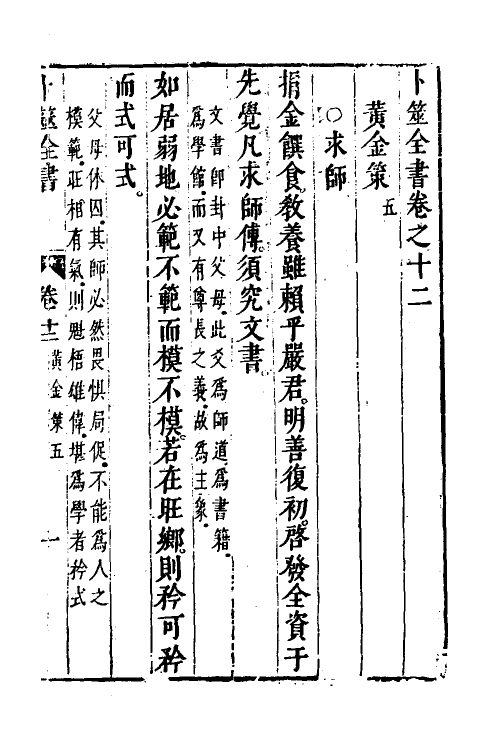 卜筮全書卷之十二
黃金策 五
○求師
捐金饌食。敎養雖賴乎嚴君。明善復初。啓發全資于
先覺。凡求師傅。須究文書。
文書卽卦中父母。此爻爲師道。爲書籍。
爲學館。而又有尊長之義。故爲主象。
如居弱地。必範不範而模不模。若在旺鄕。則矜可矜
而式可式。
父母休囚。其師必然畏惧局促。不能爲人之
模範。旺相有氣。則魁梧雄偉。堪爲學者矜式
卜筮全書 卷十二 黃金策五 一